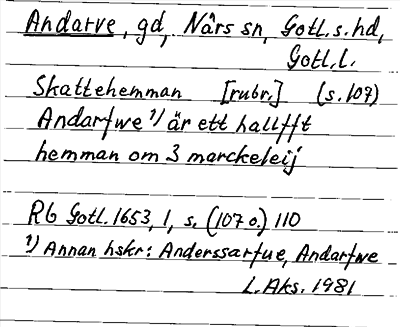 Andarve, gd, Närs sn, Gotl. s. hd,
Gotl. l.
Skattehemman [rubr.] (s. 107)
Andarfwe 1) är ett hallfft
hemman om 3 marckeleij
RB Gotl. 1653, 1, s. (107 o.) 110
1) Annan hskr: Anderssarfue, Andarfwe
L. Aks. 1981